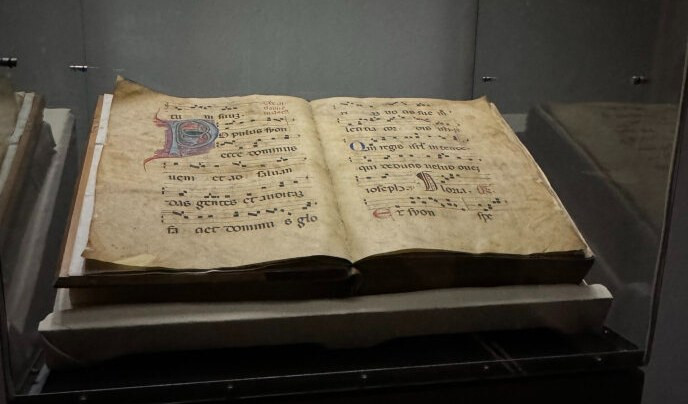 Populus syon
ecce dominus
ueni et ad saluan
das gentes et auditaz
fa ciet dominus glo
uo cis sue in
leticia cor dis
Qui regis isrl intende
qui deducis uelud ouez
ioseph. Gloria.
Et syon spe